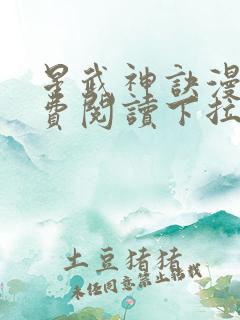 星武神訣漫
費閱讀下拉
土豆猪猪
未经同意禁止转载